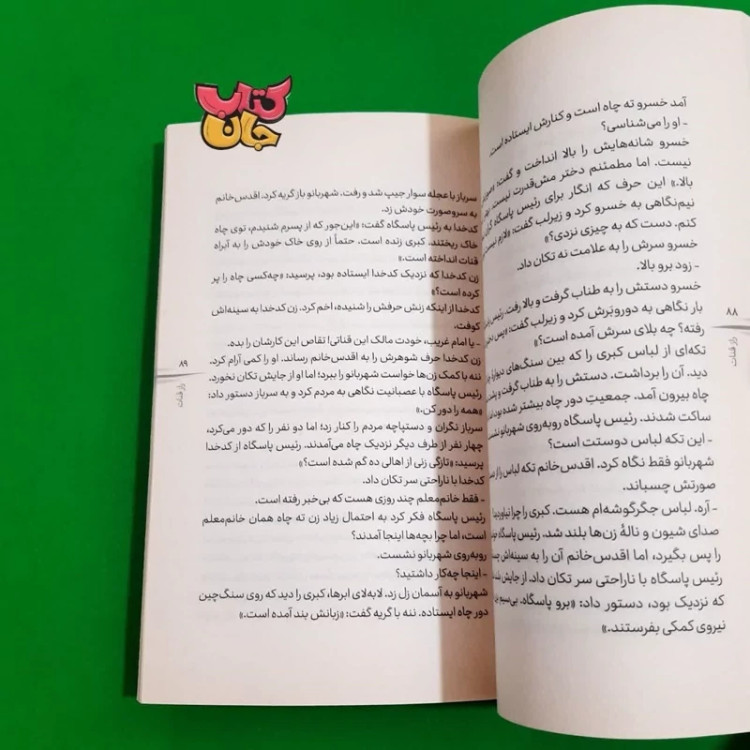 کتاب
جان
آمد خسرو ته چاه است و کنارش ایستاده است.
- او را می‌شناسی؟
خسرو شانه‌هایش را بالا انداخت و گفت:
نیست. اما مطمئنم دختر مش‌قدرت نیست.
بالا.» این حرف که انگار برای رئیس پاسگاه
نیم‌نگاهی به خسرو کرد و زیرلب گفت: «لازم
کنم. دست که به چیزی نزدی؟»
خسرو سرش را به علامت نه تکان داد.
- زود برو بالا.
خسرو دستش را به طناب گرفت و بالا رفت. رئیس
بار نگاهی به دوروبَرش کرد و زیرلب گفت: «پس
رفته؟ چه بلای سرش آمده است؟»
تکه‌ای از لباس کبری را که بین سنگ‌های دیواره
دید. آن را برداشت. دستش را به طناب گرفت و
چاه بیرون آمد. جمعیتِ دور چاه بیشتر شده
ساکت شدند. رئیس پاسگاه روبه‌روی شهربانو
- این تکه لباس دوستت است؟
شهربانو فقط نگاه کرد. اقدس‌خانم تکه لباس را از
صورتش چسباند.
- آره. لباس جگرگوشه‌ام هست. کبری را چرا
صدای شیون و نالهٔ زن‌ها بلند شد. رئیس پاسگاه
را پس بگیرد، اما اقدس‌خانم آن را به سینه‌اش
رئیس پاسگاه با ناراحتی سر تکان داد. از جایش
که نزدیک بود، دستور داد: «برو پاسگاه. بی‌سیم
نیروی کمکی بفرستند.»
۸۸
راز قنات
سرباز با عجله سوار جیپ شد و رفت. شهربانو باز گریه کرد. اقدس‌خانم
به سروصورت خودش زد.
کدخدا به رئیس پاسگاه گفت: «این‌جور که از پسرم شنیدم، توی چاه
خاک ریختند. کبری زنده است. حتماً از روی خاک خودش را به آبراه
قنات انداخته است.»
زن کدخدا که نزدیک کدخدا ایستاده بود، پرسید: «چه‌کسی چاه را پر
کرده است؟»
کدخدا از اینکه زنش حرفش را شنیده، اخم کرد. زن کدخدا به سینه‌اش
کوفت.
- یا امام غریب، خودت مالک این قناتی! تقاص این کارشان را بده.
زن کدخدا حرف شوهرش را به اقدس‌خانم رساند. او را کمی آرام کرد.
ننه با کمک زن‌ها خواست شهربانو را ببرد؛ اما او از جایش تکان نخورد.
رئیس پاسگاه با عصبانیت نگاهی به مردم کرد و به سرباز دستور داد:
«همه را دور کن.»
سرباز نگران و دستپاچه مردم را کنار زد؛ اما دو نفر را که دور می‌کرد،
چهار نفر از طرف دیگر نزدیک چاه می‌آمدند. رئیس پاسگاه از کدخدا
پرسید: «تازگی زنی از اهالی ده گم شده است؟»
کدخدا با ناراحتی سر تکان داد.
- فقط خانم‌معلم چند روزی هست که بی‌خبر رفته است.
رئیس پاسگاه فکر کرد به احتمال زیاد زن ته چاه همان خانم‌معلم
است، اما چرا بچه‌ها اینجا آمدند؟
روبه‌روی شهربانو نشست.
- اینجا چه‌کار داشتید؟
شهربانو به آسمان زل زد. لابه‌لای ابرها، کبری را دید که روی سنگ‌چین
دور چاه ایستاده. ننه با گریه گفت: «زبانش بند آمده است.»
۸۹
راز قنات